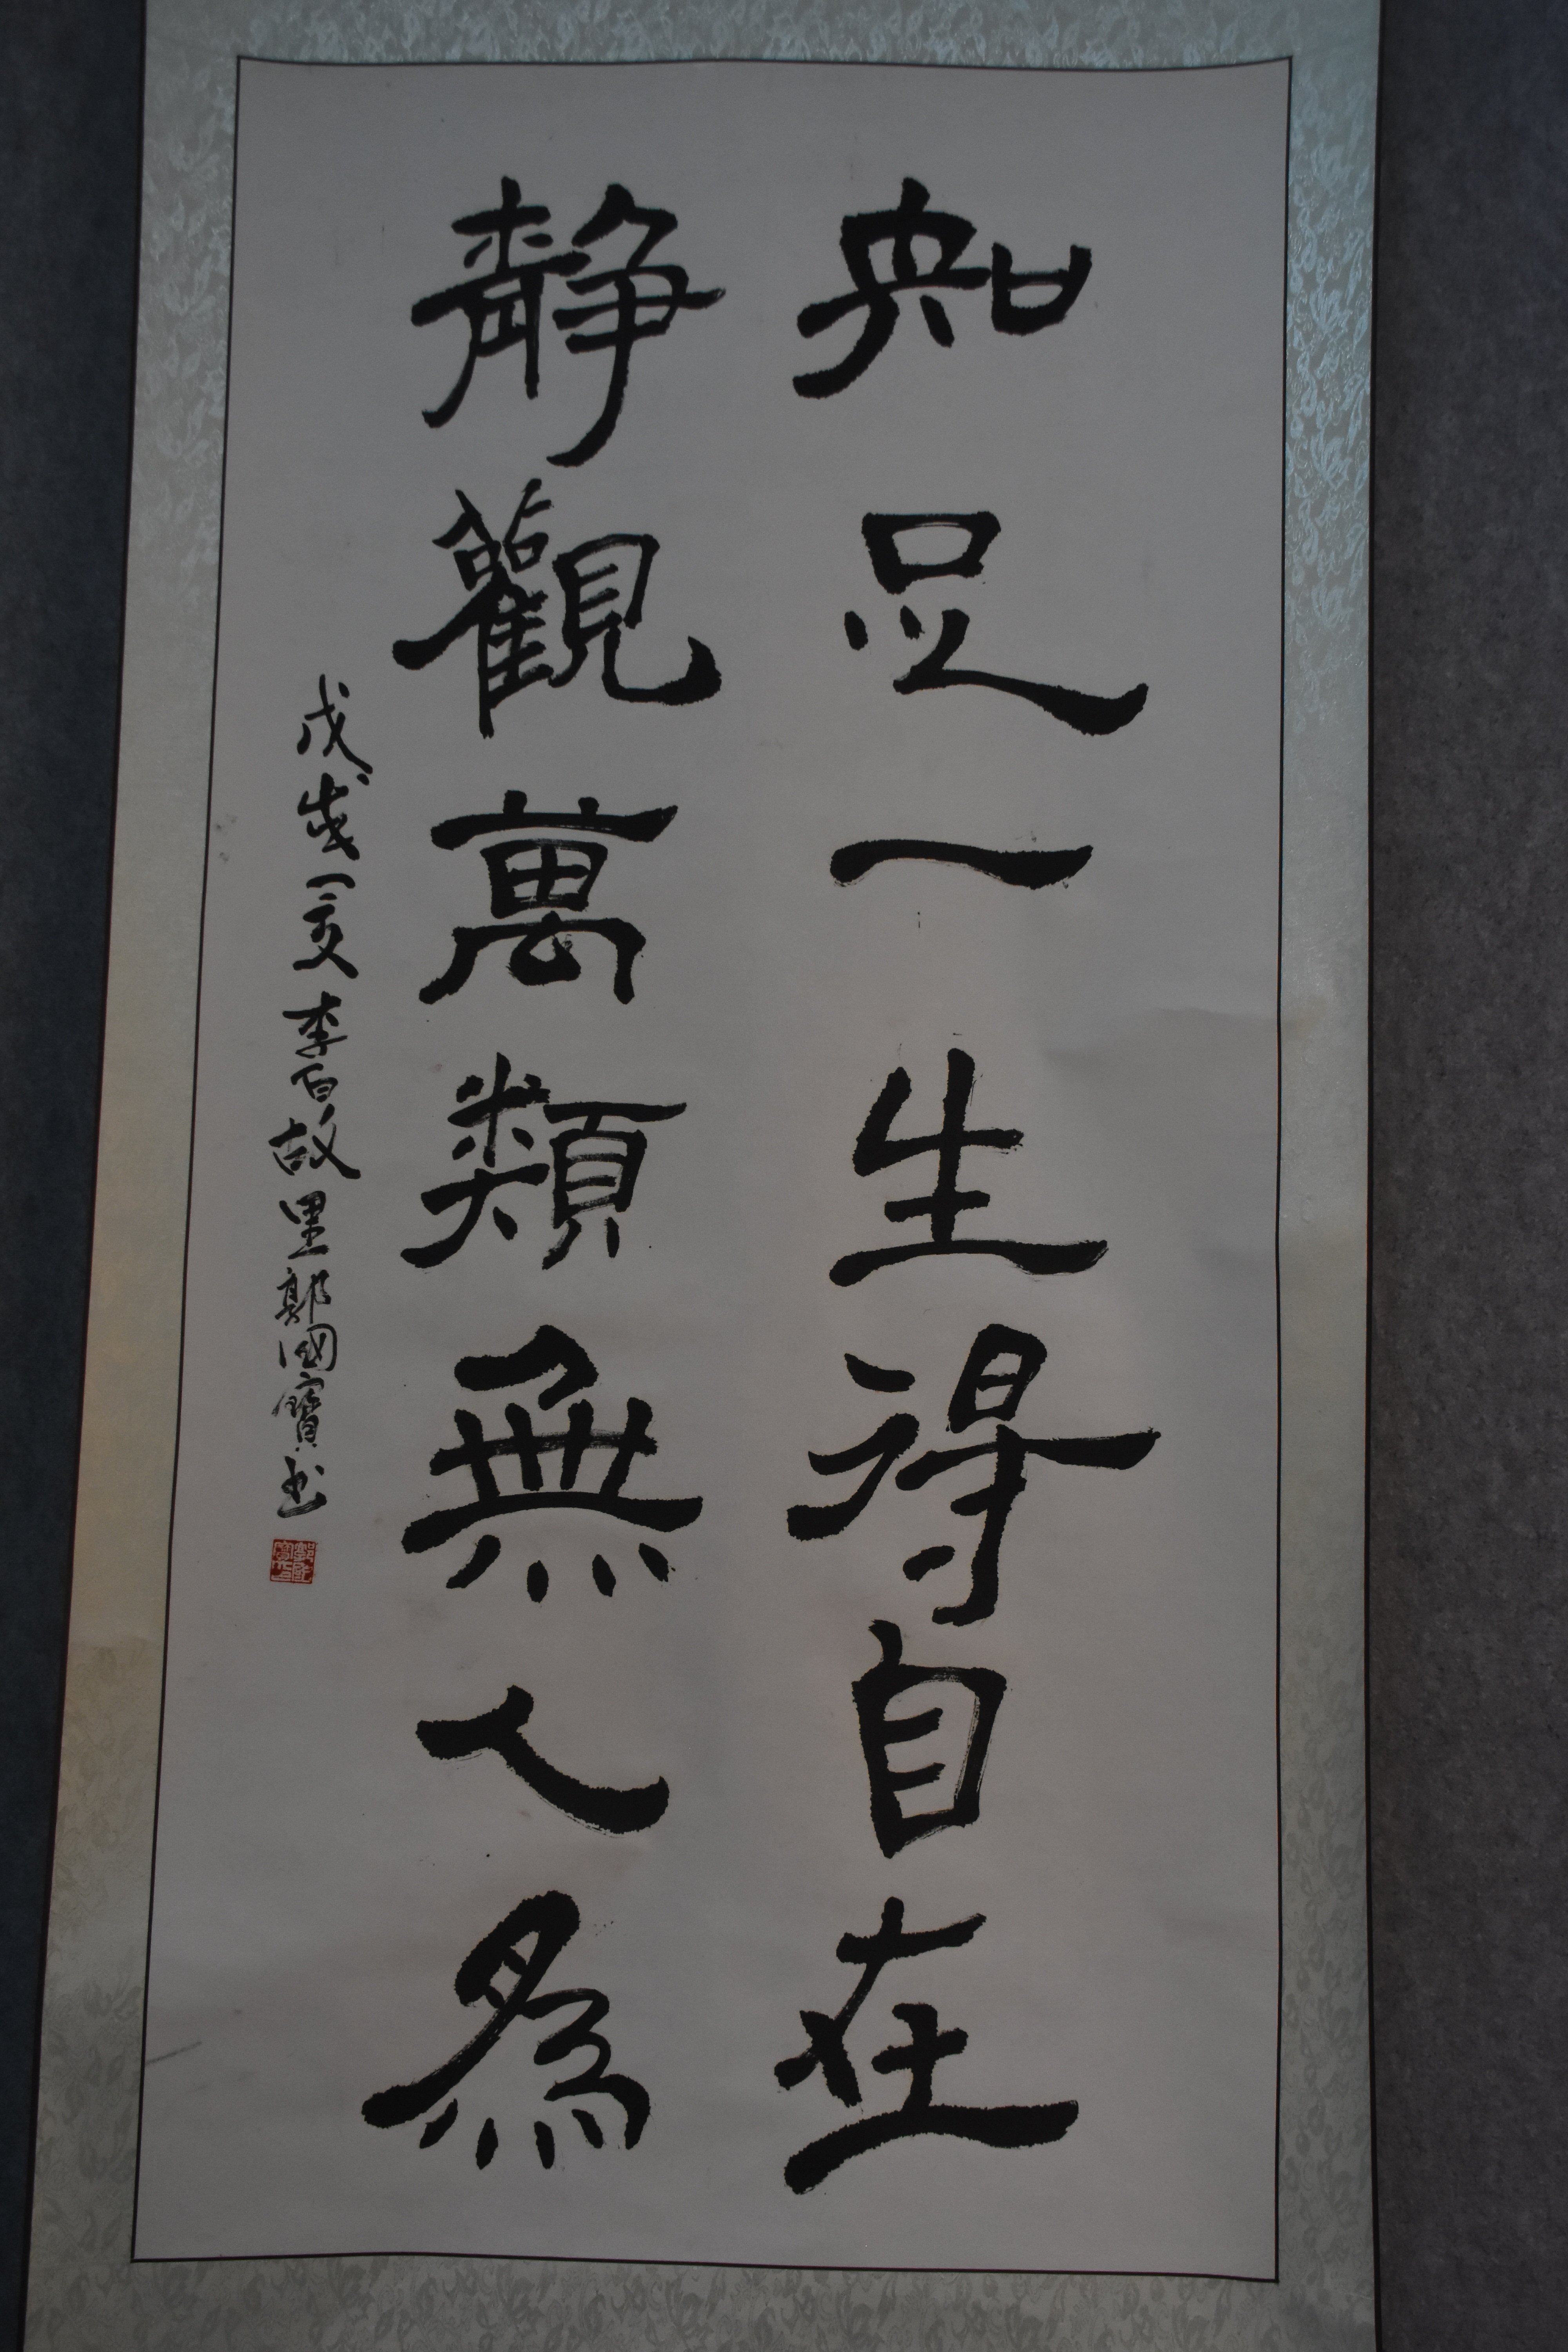 知足一生得自在
靜觀萬類無人為
戊戌夏李白故里郭國寶书